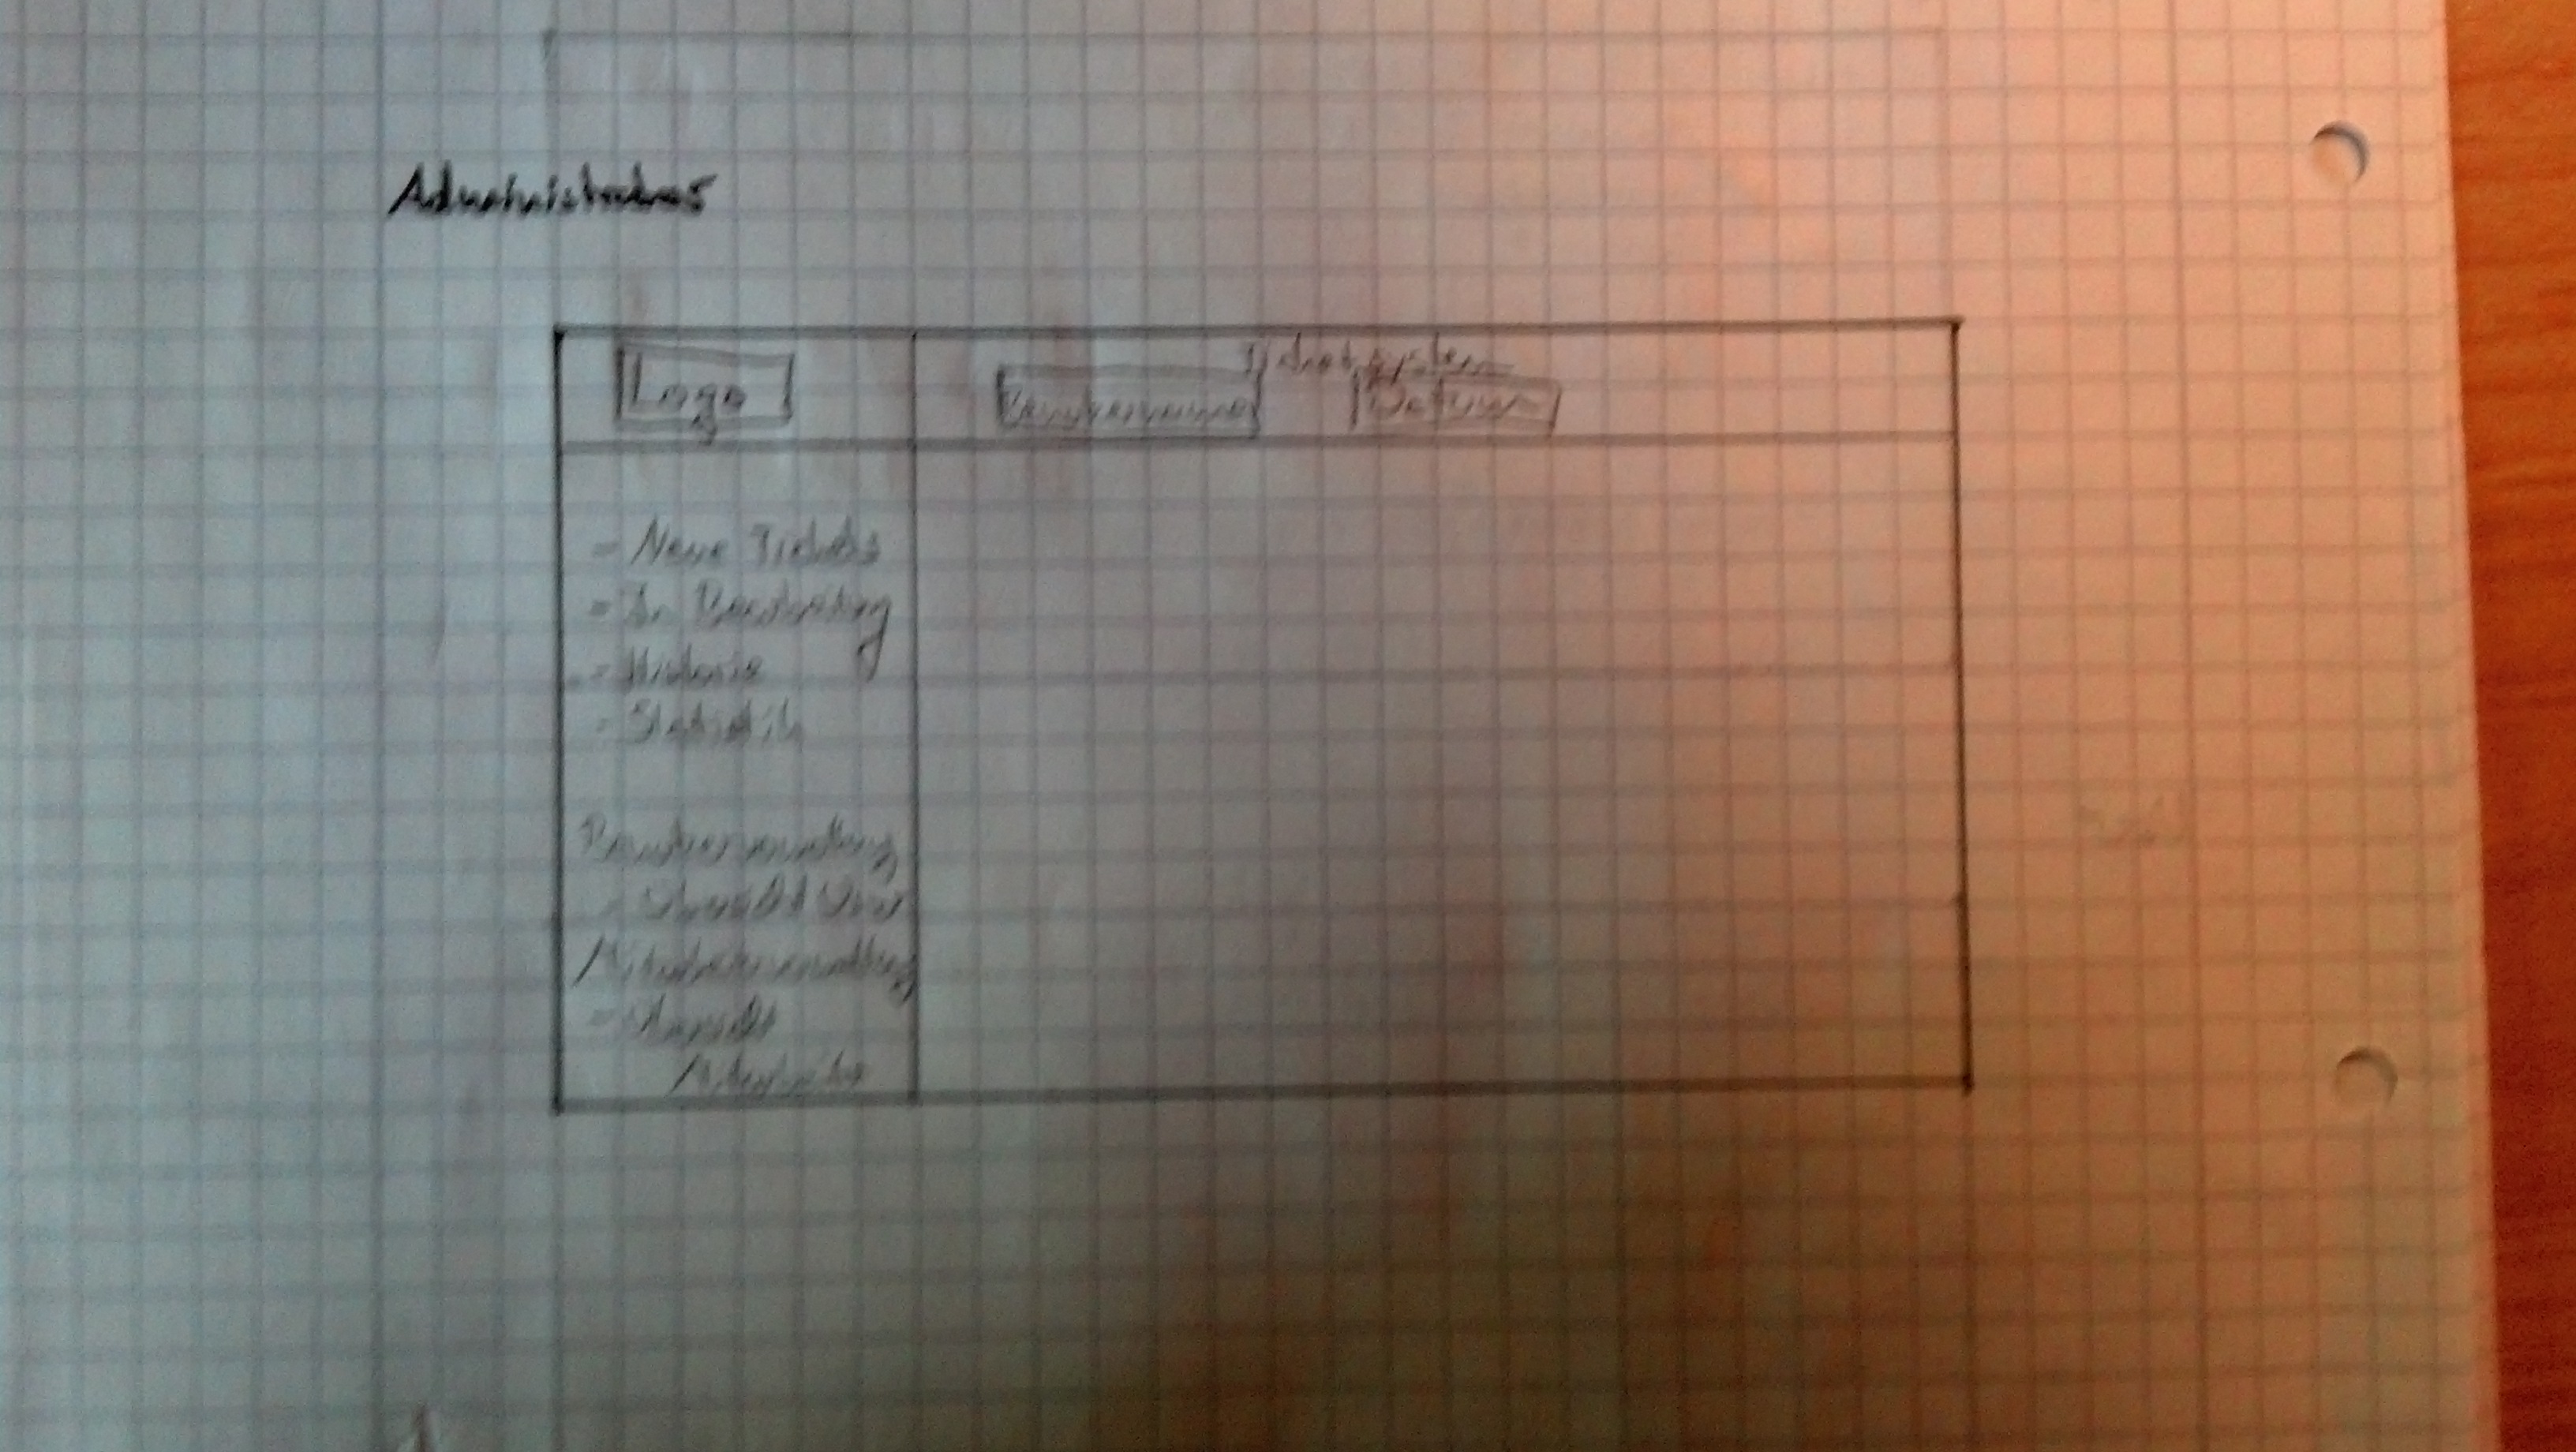 Administrator
Ticketsystem
Logo
Benutzername
Datum
- Neue Tickets
- In Bearbeitung
- Historie
- Statistik
Benutzerverwaltung
- Übersicht User
Mitarbeiterverwaltung
- Übersicht
Mitarbeiter